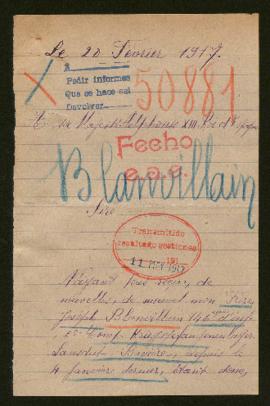 Le 20 Février 1917.
A
Pedir informes
Que se hace así
Devolver
50881
A sa Majesté Alphonse XIII Roi d'
Fecho
Blanvillain
Sire
Transmitido
resultado gestiones
11 MAY 1917
N'ayant pas reçu, de
nouvelles, de nouveau mon Frère
Joseph Blanvillain 146ème d'inf
Comp
Landshut Bavière, depuis le
4 janvier dernier, étant donc,